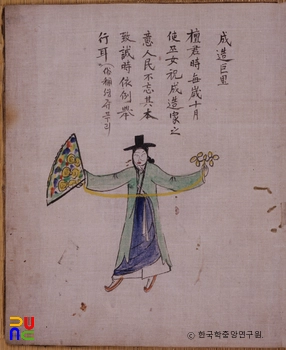 成造巨里
檀君時每歲十月
使巫女祝成造家之
意人民不忘其本
致誠時依例舉
行耳 俗稱
ⓒ 한국학중앙연구원.